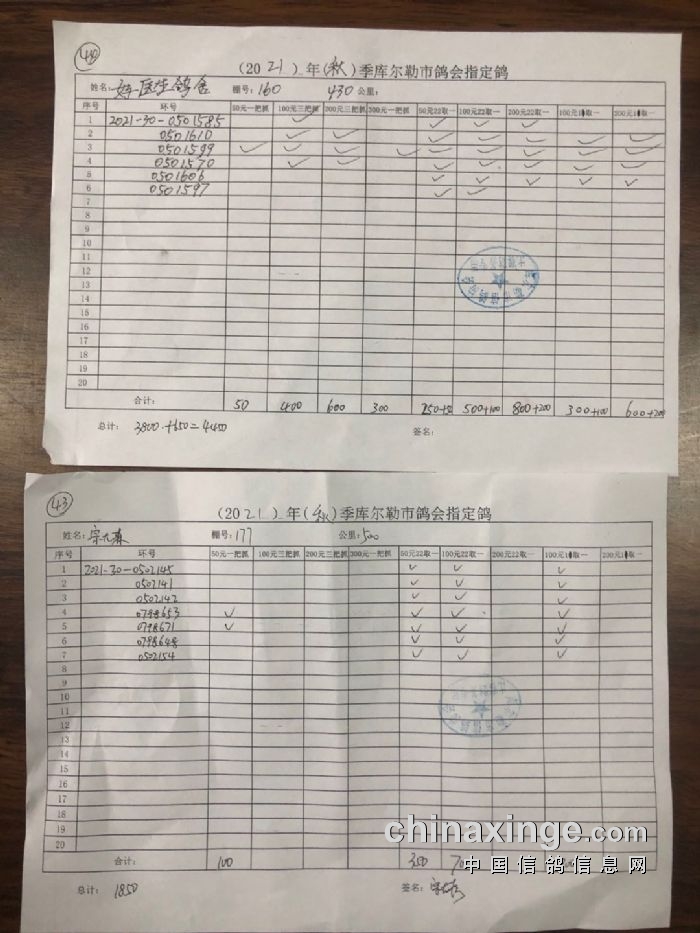 (2021)年(秋)季库尔勒市鸽会指定鸽
姓名: 医生鸽舍 棚号: 160 430公里:
序号 环号 50元一把抓 100元三把抓 200元三把抓 300元一把抓 50元22取一 100元22取一 200元22取一 100元1取一 200元1取一
1 2021-30-0501585 ✓ ✓ ✓ ✓
2 0501610 ✓ ✓ ✓ ✓ ✓ ✓ ✓
3 0501599 ✓ ✓ ✓ ✓ ✓ ✓ ✓ ✓ ✓
4 0501570 ✓ ✓ ✓ ✓ ✓ ✓ ✓
5 0501606 ✓ ✓ ✓ ✓ ✓
6 0501597 ✓ ✓
7
8
9
10
11
12
13
14
15
16
17
18
19
20
合计: 50 400 600 300 250+50 500+100 800+200 300+100 600+200
总计: 3800+650=4450 签名:
43
(2021)年(秋)季库尔勒市鸽会指定鸽
姓名: 棚号: 177 公里: 500
序号 环号 50元一把抓 100元三把抓 200元三把抓 300元一把抓 50元22取一 100元22取一 200元22取一 100元1取一 200元1取一
1 2021-30-0502145 ✓ ✓ ✓
2 0502141 ✓ ✓ ✓
3 0502142 ✓ ✓ ✓
4 0798653 ✓ ✓ ✓ ✓
5 0798671 ✓ ✓ ✓ ✓
6 0798648 ✓ ✓ ✓
7 0502154 ✓ ✓ ✓
8
9
10
11
12
13
14
15
16
17
18
19
20
合计: 100 350
总计: 1850 签名:
chinaxinge.com
中国信鸽信息网